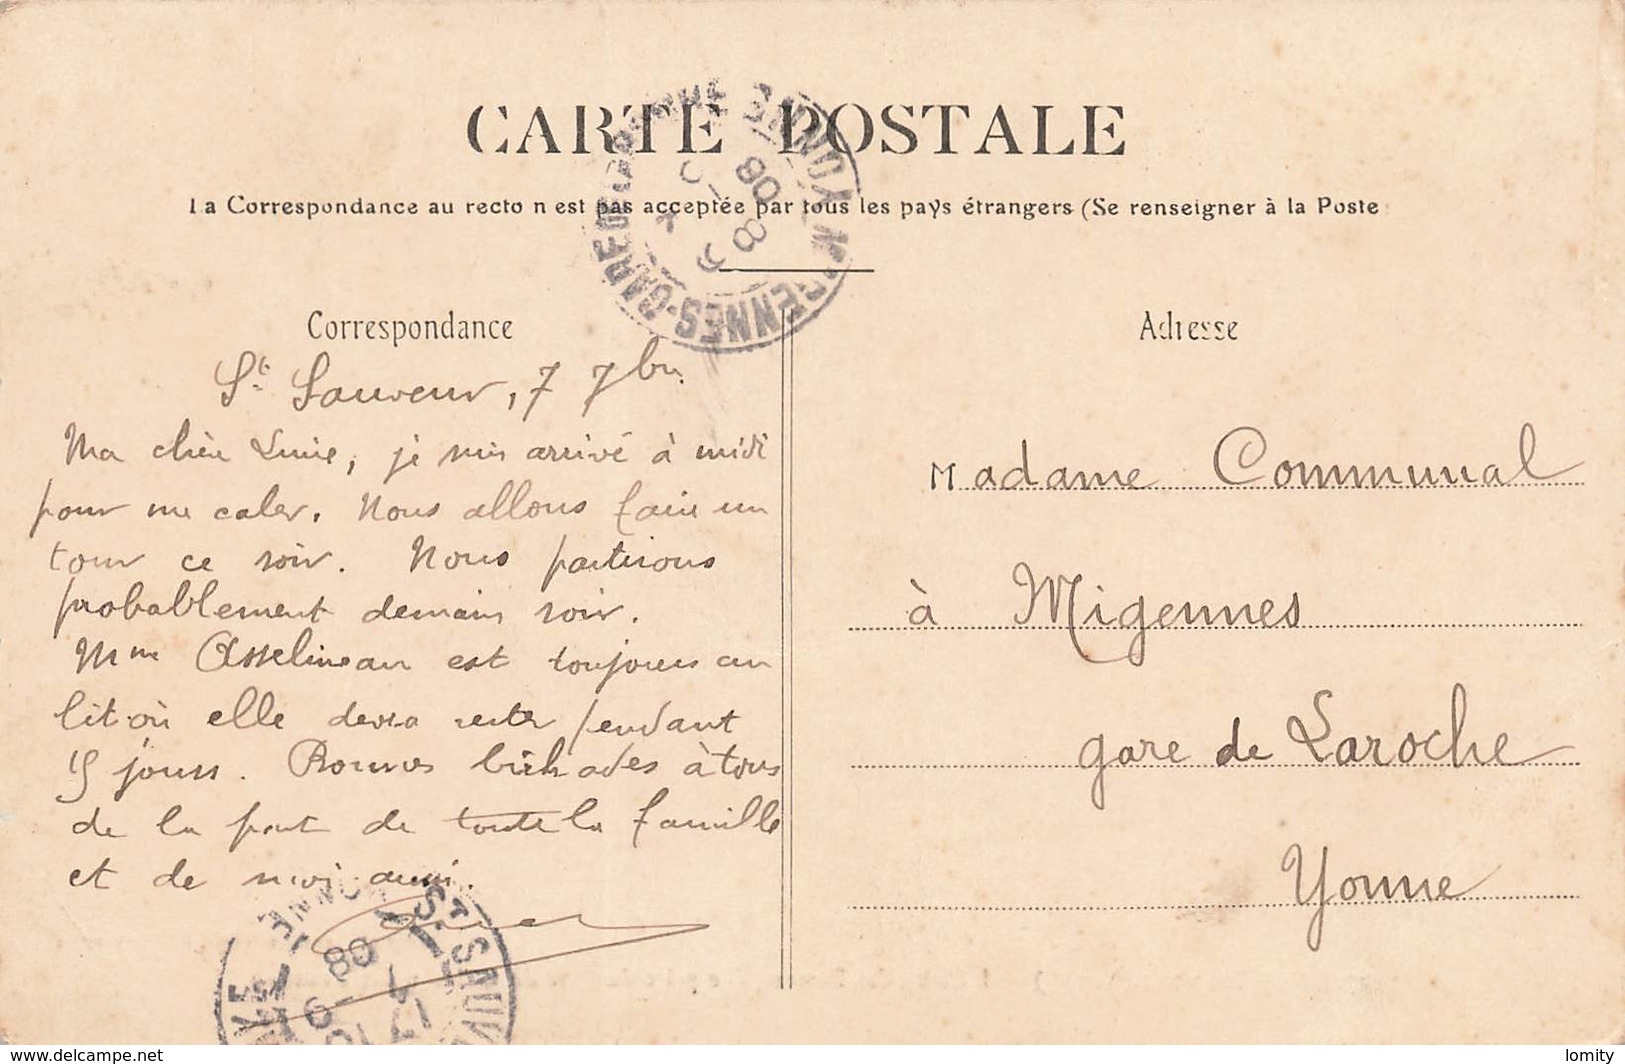 CARTE POSTALE
La Correspondance au recto n est pas acceptée par tous les pays étrangers (Se renseigner à la Poste
Correspondance
St Sauveur, 7 7bre
Ma chère Lucie, je suis arrivé à midi
pour me caler. Nous allons faire un
tour ce soir. Nous partirons
probablement demain soir.
Mme Asselineau est toujours au
lit où elle devra rester pendant
15 jours. Bonnes bichades à tous
de la part de toute la famille
et de moi aussi.
Adresse
Madame Communal
à Migennes
gare de Laroche
Yonne
MIGENNES-GARE YONNE
8 08
ST SAUV YONNE
08
www.delcampe.net
lomity